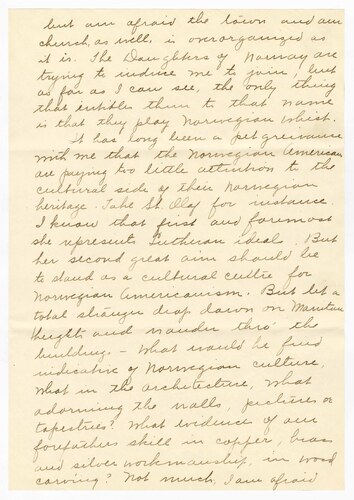 but am afraid the town and our
church, as well, is overorganized as
it is. The Daughters of Norway are
trying to induce me to join, but
as far as I can see, the only thing
that entitles them to that name
is that they play Norwegian Whist.
It has long been a pet greivance
with me that the Norwegian Americans
are paying too little attention to the
cultural side of their Norwegian
heritage. Take St. Olaf for instance.
I know that first and foremost
she represents Lutheran ideals. But
her second great aim should be
to stand as a cultural cultre for
Norwegian Americanism. But let a
total stranger drop down on Manitou
Heights and wander thro' the
building. - What would he find
indicative of Norwegian culture,
what in the architecture, what
adorning the walls, pictures or
tapestries? What evidence of our
forefathers skill in copper, brass
and silver workmanship, in wood
carving? Not much, I am afraid